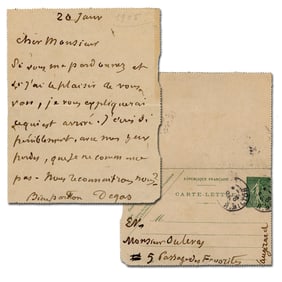 20 Janv 1905
Cher Monsieur
Si vous me pardonnez et
si j'ai le plaisir de vous
voir, je vous expliquerai
ce qui est arrivé. J'écris si
péniblement, avec mes yeux
perdus, que je
pas. Nous reconnaîtrons nous?
Bien pardon Degas
RÉPUBLIQUE FRANÇAISE
CARTE-LETTRE
Monsieur
5 Passage des Favorites
Vaugirard